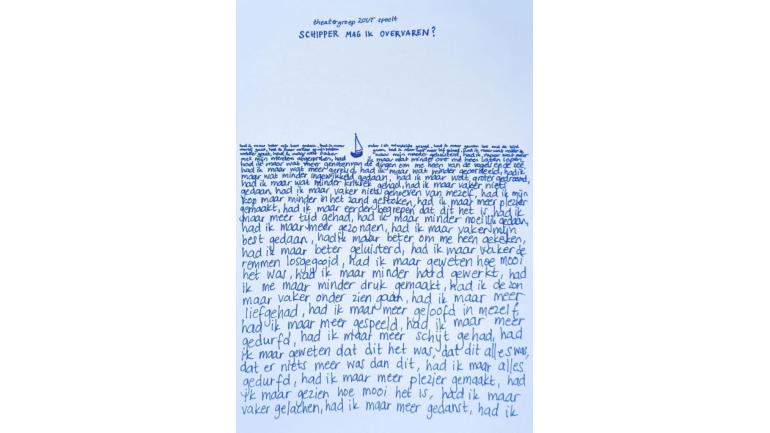 theatergroep ZOUT speelt
SCHIPPER MAG IK OVERVAREN?
had ik maar
met mijn vrienden afgesproken, had ik maar wat minder over me heen laten lopen,
had ik maar wat meer genoten van de dingen om me heen van de vogels en de zee,
had ik maar wat meer gereisd, had ik maar wat minder geoordeeld, had ik
maar wat minder ingewikkeld gedaan, had ik maar wat groter gedroomd,
had ik maar wat minder kritiek gehad, had ik maar vaker niets
gedaan, had ik maar vaker niets genieven van mezelf, had ik mijn
kop maar minder in het zand gestoken, had ik maar meer plezier
gemaakt, had ik maar eerder begrepen dat dit het is, had ik
maar meer tijd gehad, had ik maar minder moeilijk gedaan,
had ik maar meer gezongen, had ik maar vaker mijn
best gedaan, had ik maar beter om me heen gekeken,
had ik maar beter geluisterd, had ik maar vaker de
remmen losgegooid, had ik maar geweten hoe mooi
het was, had ik maar minder hard gewerkt, had
ik me maar minder druk gemaakt, had ik de zon
maar vaker onder zien gaan, had ik maar meer
liefgehad, had ik maar meer geloofd in mezelf,
had ik maar meer gespeeld, had ik maar meer
gedurfd, had ik maar meer schijt gehad, had
ik maar geweten dat dit het was, dat dit alles was,
dat er niets meer was dan dit, had ik maar alles
gedurfd, had ik maar meer plezier gemaakt, had
ik maar gezien hoe mooi het is, had ik maar
vaker gelachen, had ik maar meer gedanst, had ik